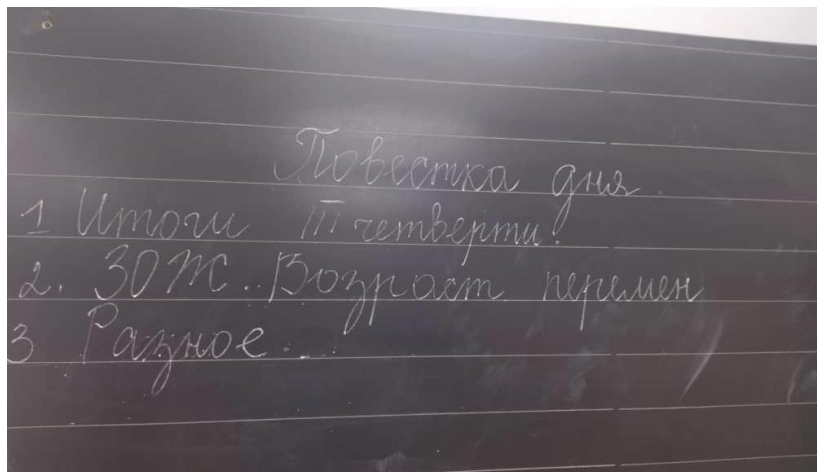 Повестка дня.
1 Итоги III четверти.
2. ЗОЖ.. Возраст перемен
3 Разное.